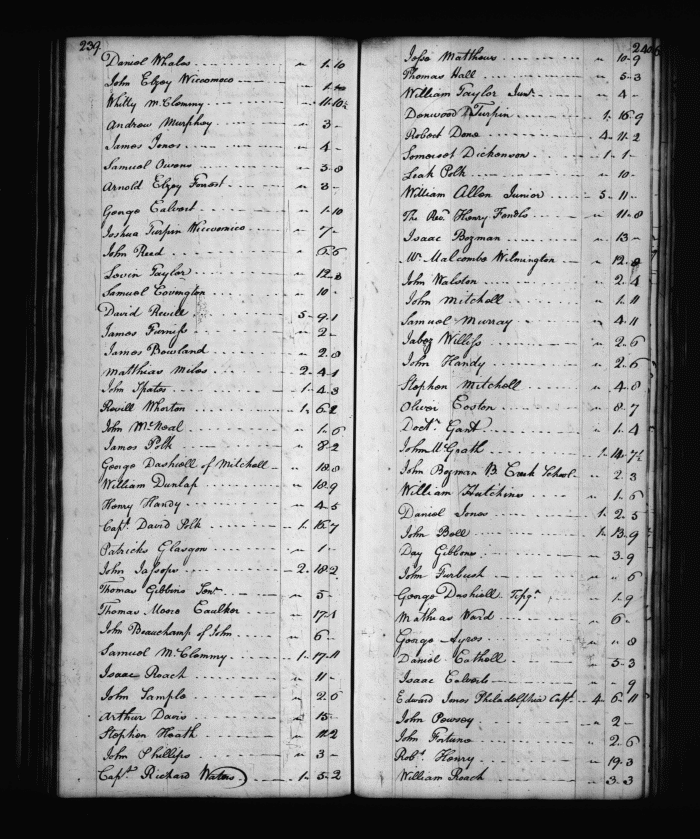 239
Daniel Whales " 1-10
John Elzey Wiccomoco " 1-10
Whitty McClommy " 11-10½
Andrew Murphey " 3-
James Jones " 4-
Samuel Owens " 3-8
Arnold Elzey Forrest " 3-
George Calvert " 1-10
Joshua Turpin Wiccomoco " 7-
John Reed " 6-6
Levin Taylor " 12-8
Samuel Covington " 10-
David Revill 5-9-1
James Furniss " 2-
James Bowland " 2-8
Matthias Miles 2-4-1
John Spates 1-4-3
Revill Whorton 1-6-2
John McNeal " 1-6
James Polk " 8-2
George Dashiell of Mitchell " 18-8
William Dunlap " 18-9
Henry Handy " 4-5
Capt. David Polk 1-15-7
Patricks Glasgow " 1-
John Jessops 2-18-2
Thomas Gibbins Senr. " 5-
Thomas Moore Caulker " 17-1
John Beauchamp of John " 6-
Samuel McClommy 1-17-11
Isaac Roach " 11-
John Sample " 2-6
Arthur Davis " 15-
Stephen Heath " 12-2
John Phillips " 3-
Capt. Richard Waters 1-5-2
240
Jesse Matthews " 10-9
Thomas Hall " 5-3
William Taylor Junr. " 4-
Denwood Turpin 1-16-9
Robert Done 4-11-2
Somerset Dickenson 1-1-
Leah Polk " 10-
William Allen Junior 5-11-
The Revd. Henry Fendls " 11-8
Isaac Bozman " 13-
Mr. Malcombe Wilmington " 12-8
John Walston " 2-4
John Mitchell " 1-11
Samuel Murray " 4-11
Jabez Williss " 2-6
John Handy " 2-6
Stephen Mitchell " 4-8
Oliver Coston " 8-7
Doctr. Gant " 1-4
John McGrath 1-14-7½
John Bozman B. Creek School " 2-3
William Hutchins " 1-6
Daniel Jones 1-2-5
John Bell 1-13-9
Day Gibbons " 3-9
John Furbush " " 6
George Dashiell " 1-9
Mathias Ward " 6-
George Ayres " " 8
Daniel Cathell " 5-3
Isaac Calverts " - 9
Edward Jones Philadelphia Capt. 4-6-11
John Powsey " 2-
John Fortune " 2-6
Robt. Henry " 19-3
William Roach " 3-3